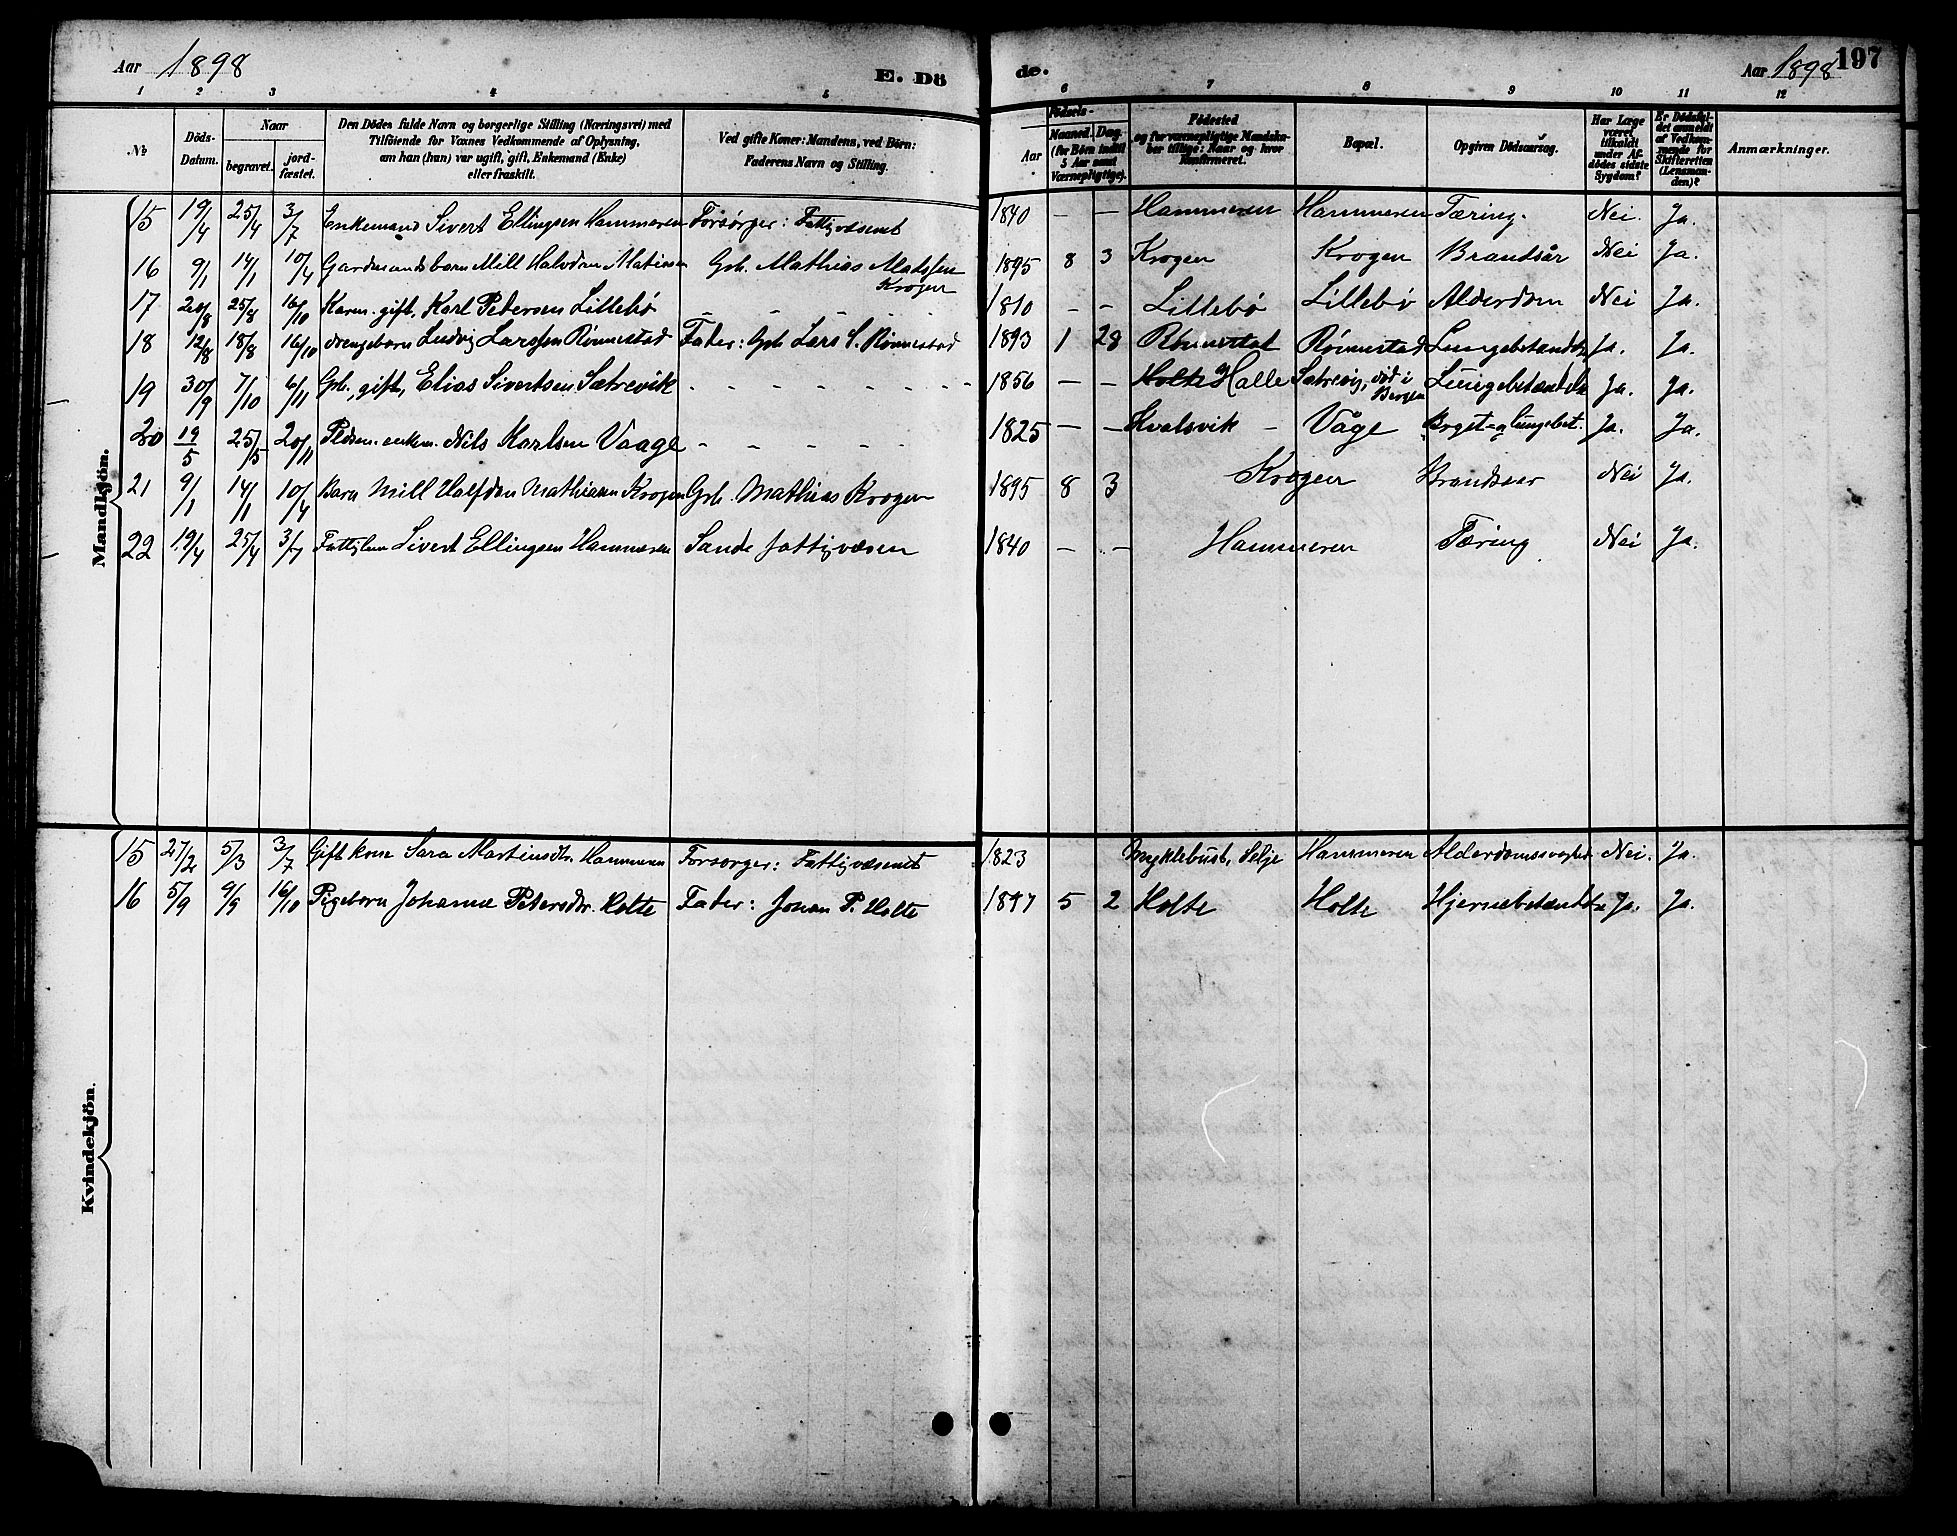 Aar 1898 E. Dö de. Aar 1898 197
1 2 3 4 5 6 7 8 9 10 11 12
№ Döds-Datum. Naar begravet. jord-fæstet. Den Dödes fulde Navn og borgerlige Stilling (Næringsvei) med Tilföiende for Voxnes Vedkommende af Oplysning, om han (hun) var ugift, gift, Enkemand (Enke) eller fraskilt. Ved gifte Koner: Mandens, ved Börn: Faderens Navn og Stilling. Födsels- Aar Maaned. Dag. (for Börn indtil 5 Aar samt Værnepligtige). Födested og for værnepligtige Mandskaber tillige: Naar og hvor Konfirmeret. Bopæl. Opgiven Dödsaarsag. Har Læge været tilkaldt under Afdödes sidste Sygdom? Er Dödsfaldet anmeldt af Vedkommende for Skifteretten (Lensmanden)? Anmærkninger.
Mandkjön.
15 19/4 25/4 3/7 Enkemand Sivert Ellingsen Hammeren Forsørger: Fattigvæsenet 1840 — — Hammeren Hammeren Tæring. Nei. Ja.
16 9/1 14/1 10/4 Gardmandsbarn Mill Halvdan Matiasen Gbr. Mathias Madssen Krogen 1895 8 3 Krogen Krogen Brandsår Nei Ja.
17 20/8 25/8 16/10 Kaarm. gift, Karl Petersen Lillebø - - - - - 1810 - - Lillebø Lillebø Alderdom Nei Ja.
18 12/8 18/8 16/10 Drengebarn Ludvig Larssen Rönnestad Fader: Gbr Lars S. Rönnestad 1893 1 28 Rönnestad Rönnestad Lungebetændelse Ja. Ja.
19 30/9 7/10 6/11 Gbr., gift, Elias Sivertsen Sætrevik - - - - - - - - 1856 — — Holte Halle Sætrevig, død i Bergen Lungebetændelse Ja. Ja.
20 19/5 25/5 20/11 Pldsm. enkm. Nils Karlsen Vaage - - - - - 1825 — — Kvalsvik - Våge Bryst- og lungebet. Ja. Ja.
21 9/1 14/1 10/4 Barn Mill Halfdan Mathiasen Krogen Gbr. Mathias Krogen 1895 8 3 Krogen Brandsaar Nei Ja.
22 19/4 25/4 3/7 Fattiglem Sivert Ellingsen Hammeren Sande fattigvæsen 1840 — — Hammeren Tæring Nei Ja.
Kvindekjön.
15 27/2 5/3 3/7 Gift kone Sara Martinsdtr. Hammeren Forsørger: Fattigvæsenet 1823 Myklebust, Selje Hammeren Alderdomssvaghed Nei. Ja.
16 5/9 9/9 16/10 Pigebarn Johanna Petersdtr. Holte Fader: Johan P. Holte 1897 5 2 Holte Holte Hjernebetændelse Ja. Ja.